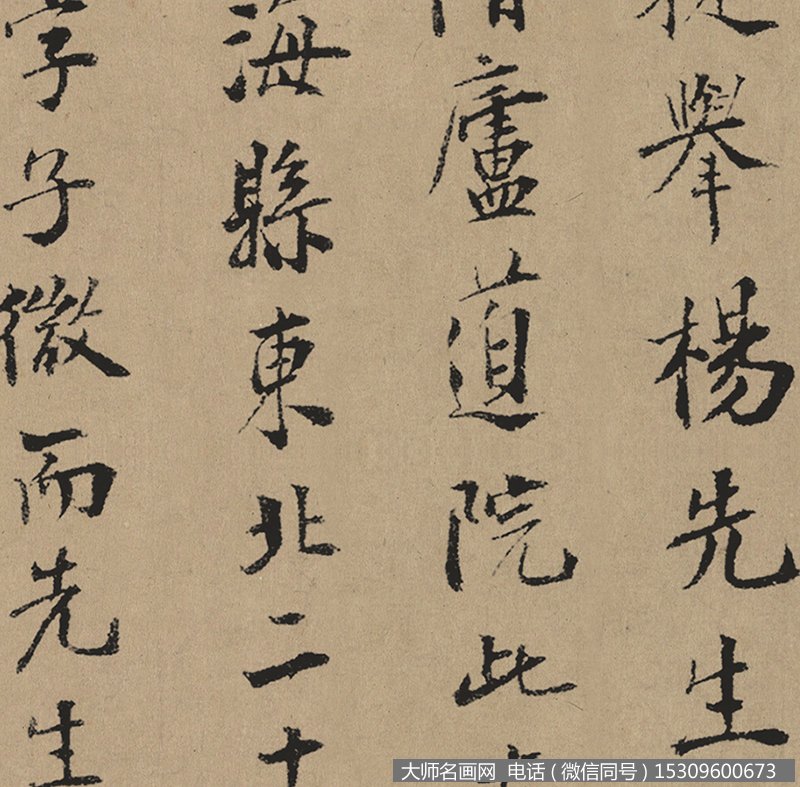 舉楊先生
廬道院此
海縣東北二十
字子微而先生
大师名画网 电话（微信同号）15309600673